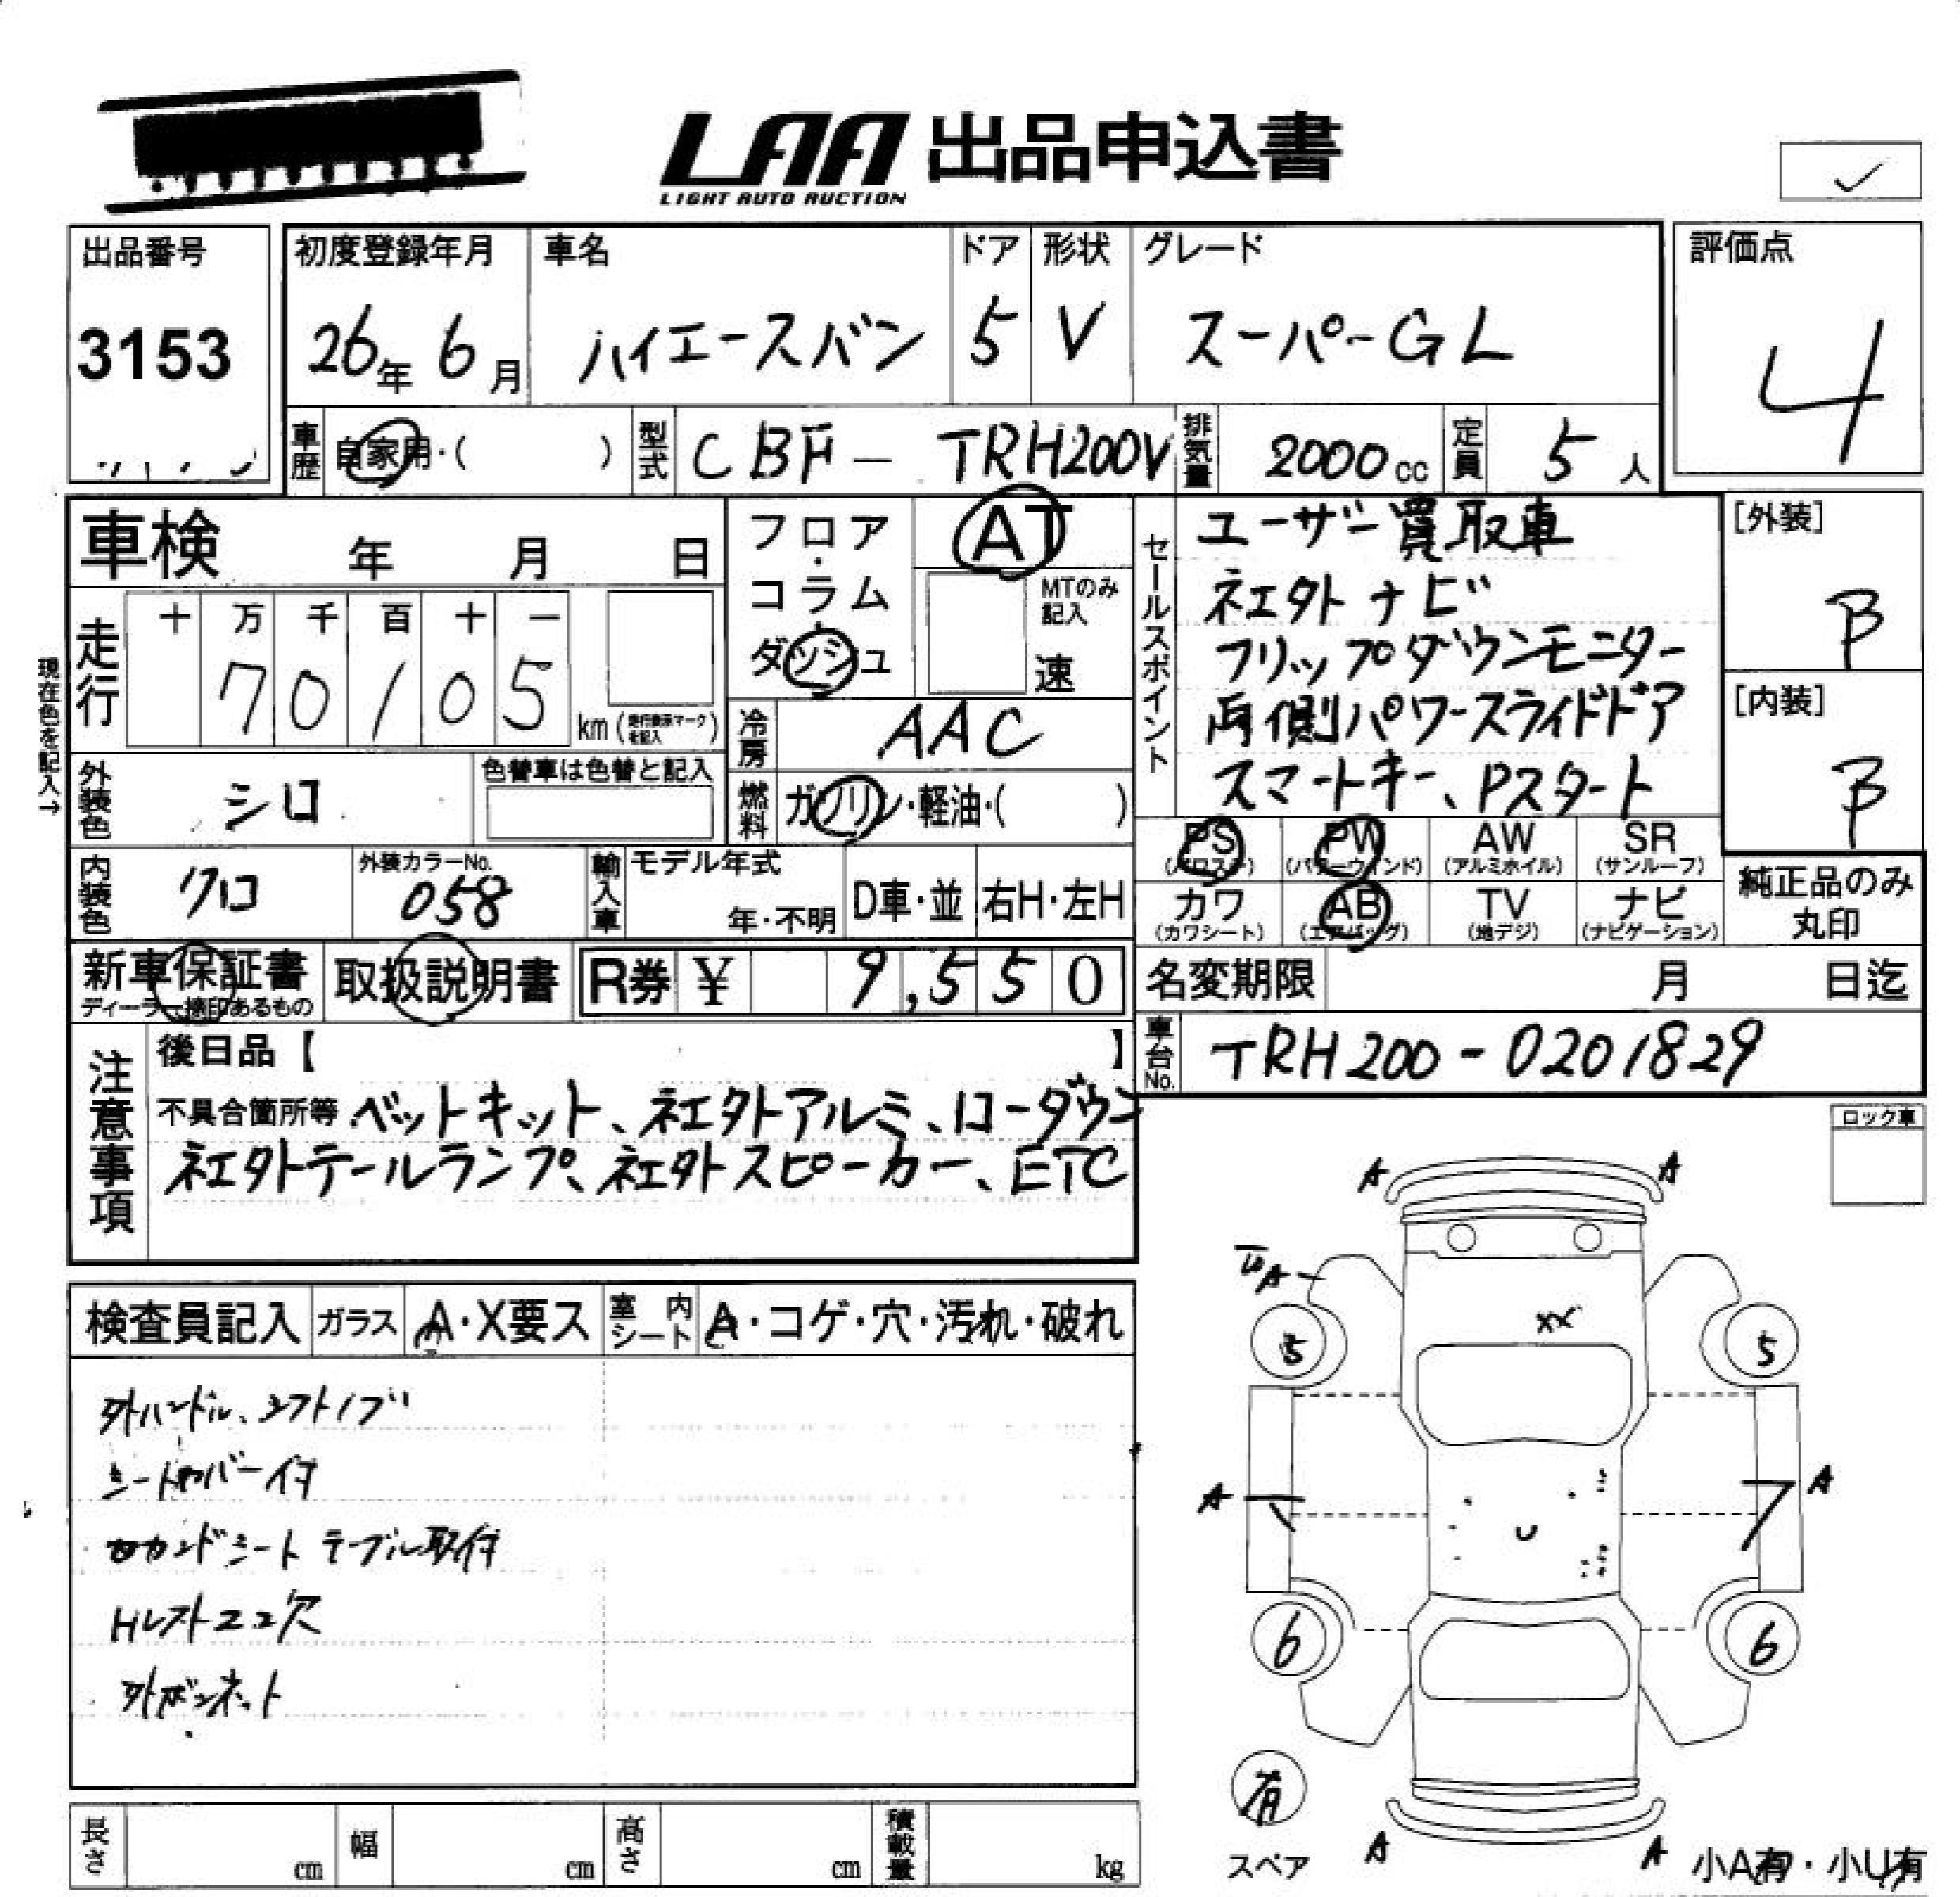 LAA 出品申込書
LIGHT AUTO AUCTION
✓
出品番号
3153
初度登録年月
26年 6月
車名
ハイエースバン
ドア
5
形状
V
グレード
スーパーGL
評価点
4
車歴
自家用・( )
型式
CBF - TRH200V
排気量
2000cc
定員
5人
車検 年 月 日
走行
十 万 千 百 十 一
70105
km(走行表示マークを記入)
現在色を記入→
フロア・コラム・ダッシュ
AT
MTのみ記入
速
冷房
AAC
燃料
ガソリン・軽油・( )
セールスポイント
ユーザー買取車
社外ナビ
フリップダウンモニター
両側パワースライドドア
スマートキー、Pスタート
[外装]
B
[内装]
B
外装色
シロ
色替車は色替と記入
内装色
クロ
外装カラーNo.
058
輸入車
モデル年式
年・不明
D車・並
右H・左H
PS
(パワステ)
PW
(パワーウインド)
AW
(アルミホイル)
SR
(サンルーフ)
カワ
(カワシート)
AB
(エアバッグ)
TV
(地デジ)
ナビ
(ナビゲーション)
純正品のみ
丸印
新車保証書
ディーラー捺印あるもの
取扱説明書
R券 ¥ 9,550
名変期限 月 日迄
車台No.
TRH200-0201829
注意事項
後日品【 】
不具合箇所等 ベットキット、社外アルミ、ローダウン
社外テールランプ、社外スピーカー、ETC
ロック車
検査員記入
ガラス
A・X要ス
室内シート
A・コゲ・穴・汚れ・破れ
外ハンドル、シフトノブ
シートカバー付
セカンドシート テーブル取付
Hレスト22欠
外ボンネット
A A
A
XX
5 5
A A
U
6 6
有
スペア
A A
小A有・小U有
長さ cm
幅 cm
高さ cm
積載量 kg